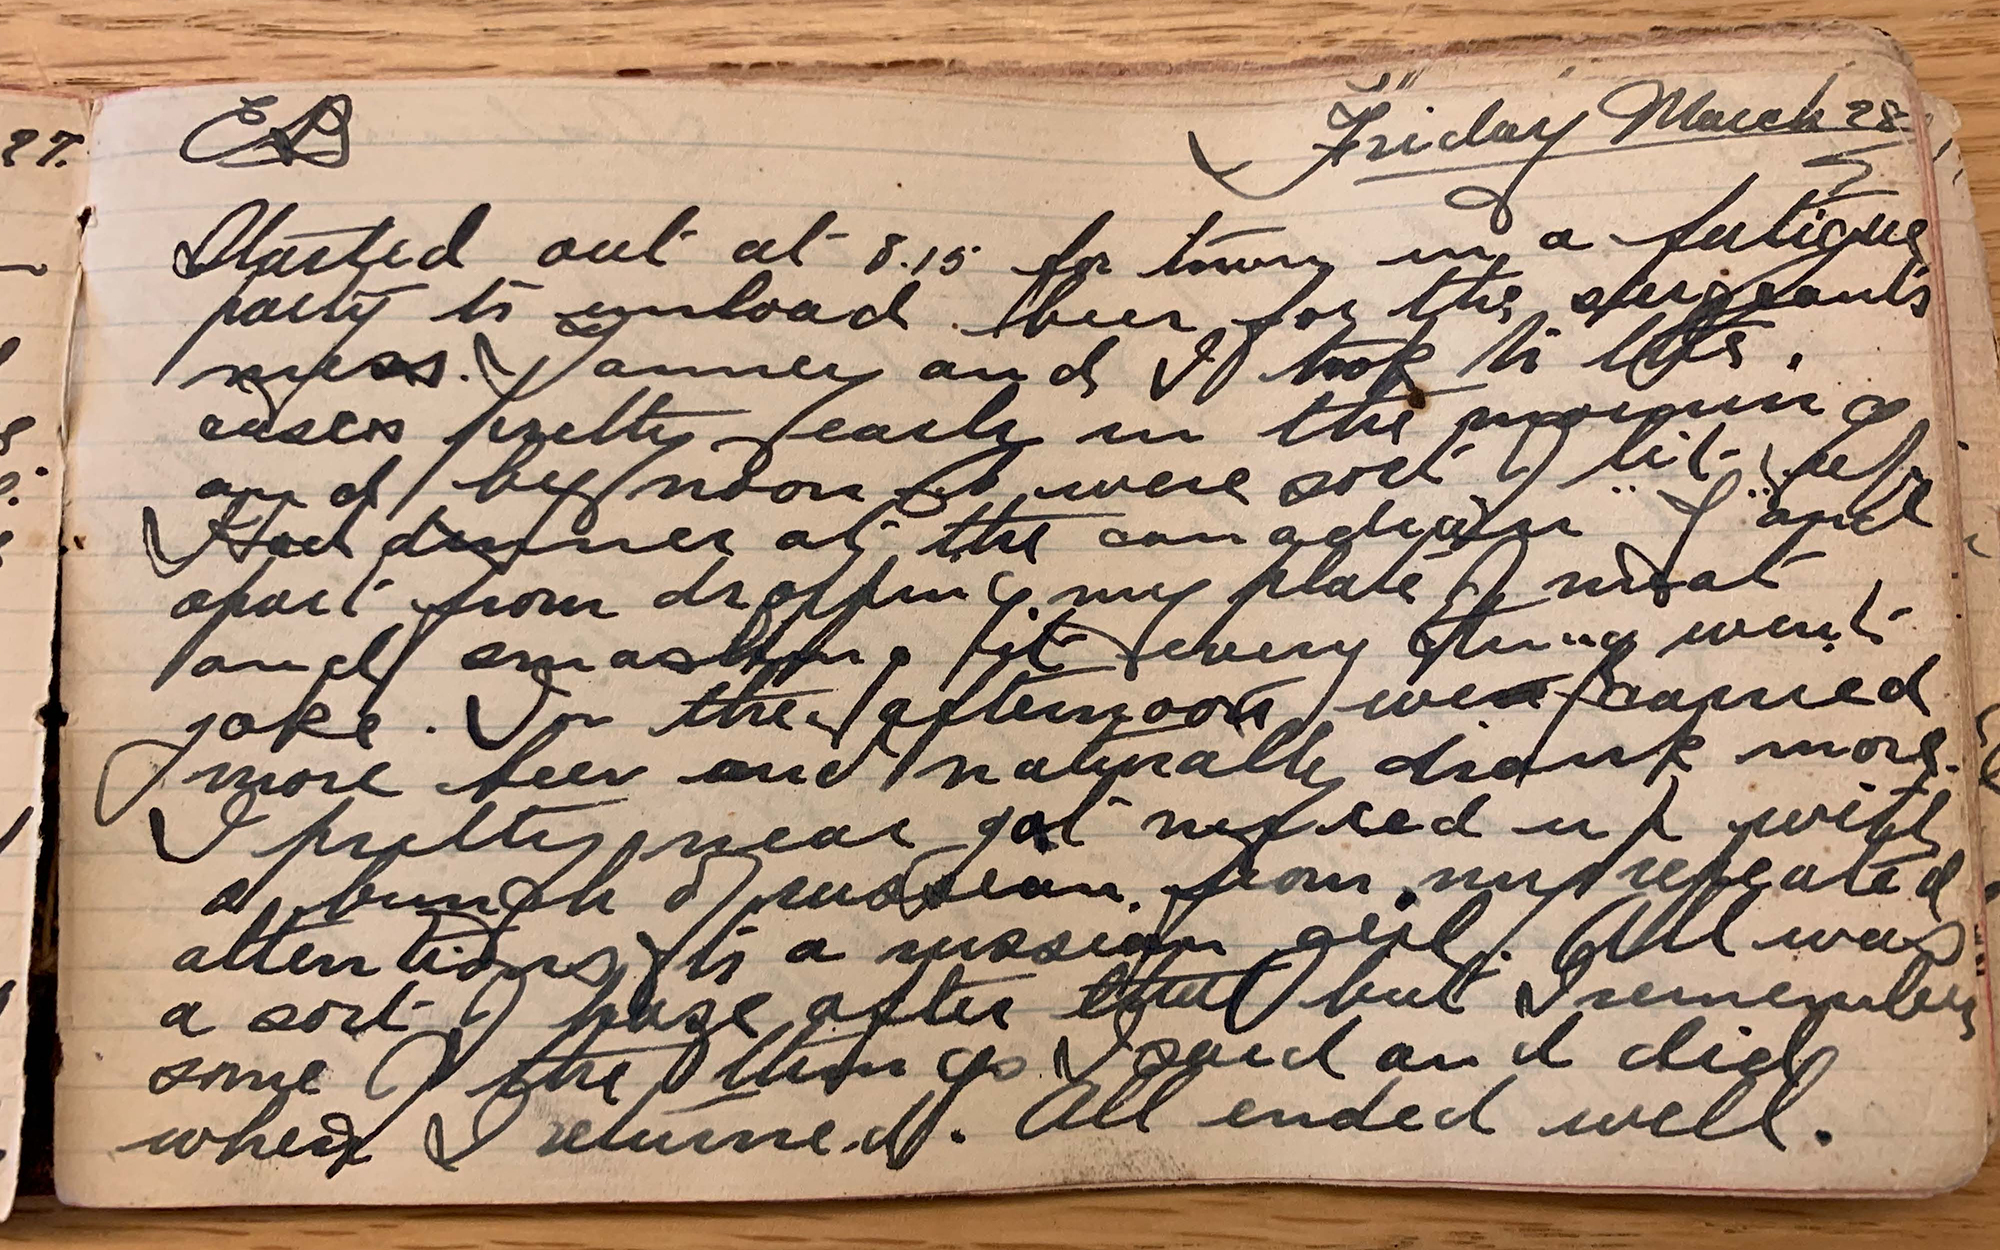 27.
EB
Friday March 28
Started out at 8.15 for town in a fatigue
party to unload beer for the sergeants
mess. Yanney and I took to the
cases pretty early in the morning
and by noon were sort of lit up.
Had dinner at the canadian "Y" and
apart from dropping my plate of meat
and smashing it every thing went
joke. In the afternoon we carried
more beer and naturally drank more.
I pretty near got mixed up with
a bunch of russian from my repeated
attentions to a russian girl. All was
a sort of haze after that but I remember
some of the things I said and did
when I returned. All ended well.